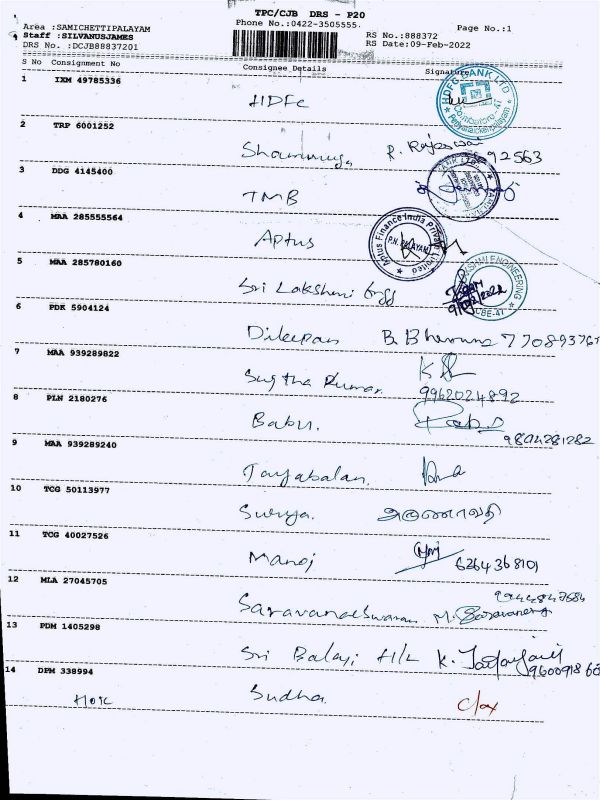 TPC/CJB DRS - P20
Area :SAMICHETTIPALAYAM
Phone No.:0422-3505555.
Page No.:1
Staff :SILVANUSJAMES
RS No.:888372
DRS No. :DCJB88837201
RS Date:09-Feb-2022
S No Consignment No Consignee Details Signature
1 IXM 49785336
HDFC
HDFC BANK LTD
Coimbatore-47
2 TRP 6001252
Shanmuga R. Rajeswari 92563
3 DDG 4145400
TMB
4 MAA 285555564
Aptus
Aptus Finance India Private Limited
P.N. PALAYAM
5 MAA 285780160
Sri Lakshmi Engg
LAKSHMI ENGINEERING
CBE-47
6 PDK 5904124
Dileepan
7 MAA 939289822
Sugtha Kumar
9962024892
8 PLN 2180276
Babu.
9894281282
9 MAA 939289240
Jayabalan.
10 TCG 50113977
Surya.
11 TCG 40027526
Manoj
6264368101
12 MLA 27045705
Saravaneswaran M.
13 PDM 1405298
Sri Balaji H/L K.
14 DPM 338994
Sudha